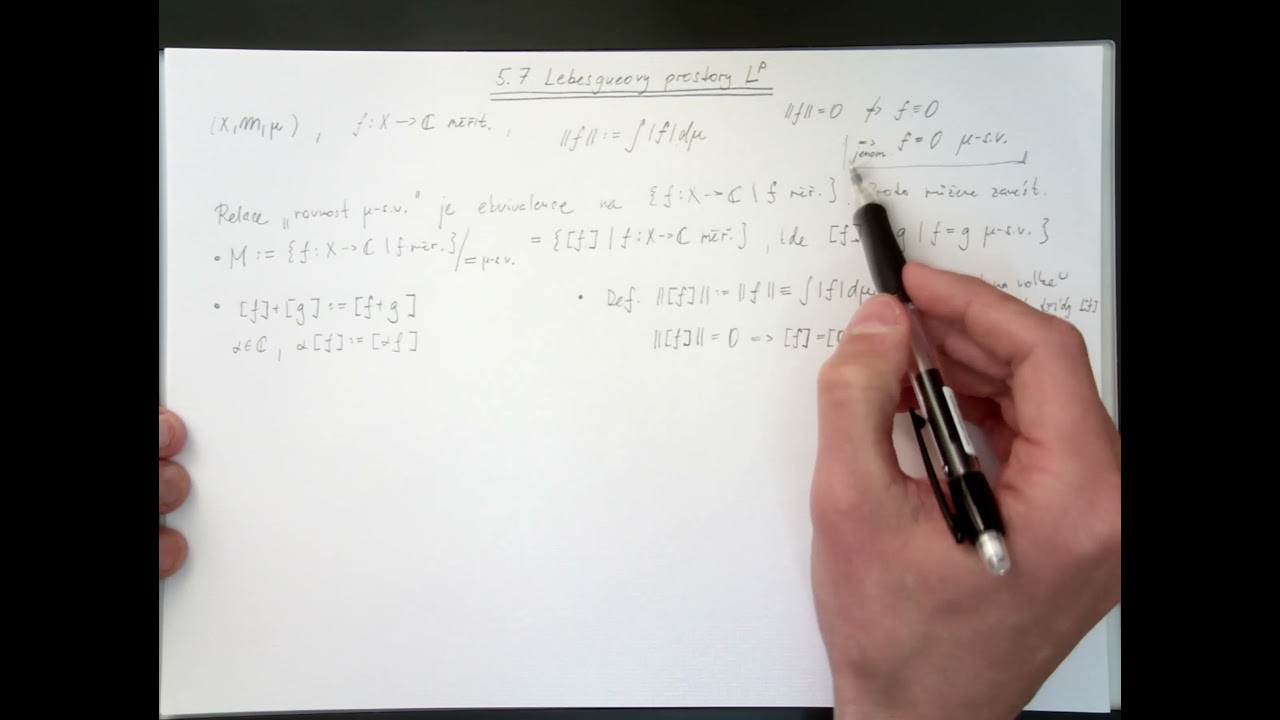 5.7 Lebesgueovy prostory L^p
(X, m, μ) , f: X → ℂ měřit. , ‖f‖ := ∫ |f| dμ ‖f‖ = 0 ⇏ f ≡ 0
⇒ jenom f = 0 μ-s.v.
Relace „rovnost μ-s.v." je ekvivalence na { f: X → ℂ | f měř. } . Proto můžeme zavést.
• M := { f: X → ℂ | f měř. } / = μ-s.v. = { [f] | f: X → ℂ měř. } , kde [f] g | f = g μ-s.v. }
• [f] + [g] := [f+g]
α ∈ ℂ , α[f] := [αf]
• Def. ‖[f]‖ := ‖f‖ ≡ ∫ |f| dμ na volbě
třídy [f]
‖[f]‖ = 0 ⇒ [f] = [0